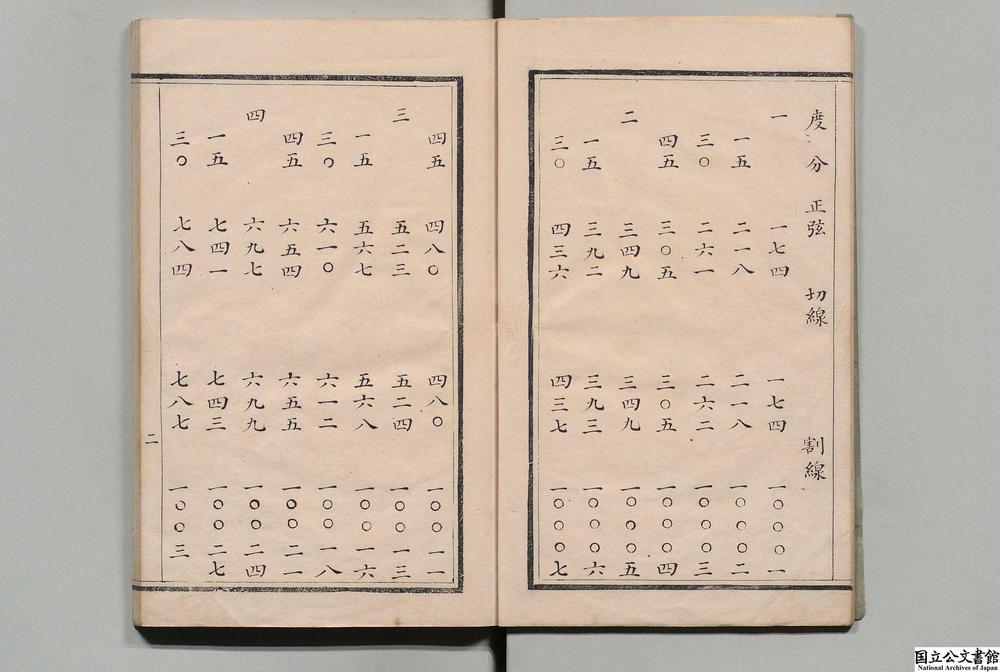 度 分 正弦 切線 割線
一 一七四 一七四 一〇〇〇一
一五 二一八 二一八 一〇〇〇二
三〇 二六一 二六二 一〇〇〇三
四五 三〇五 三〇五 一〇〇〇四
二 三四九 三四九 一〇〇〇五
一五 三九二 三九三 一〇〇〇六
三〇 四三六 四三七 一〇〇〇七
四五 四八〇 四八〇 一〇〇一一
三 五二三 五二四 一〇〇一三
一五 五六七 五六八 一〇〇一六
三〇 六一〇 六一二 一〇〇一八
四五 六五四 六五五 一〇〇二一
四 六九七 六九九 一〇〇二四
一五 七四一 七四三 一〇〇二七
三〇 七八四 七八七 一〇〇三
二
国立公文書館
National Archives of Japan